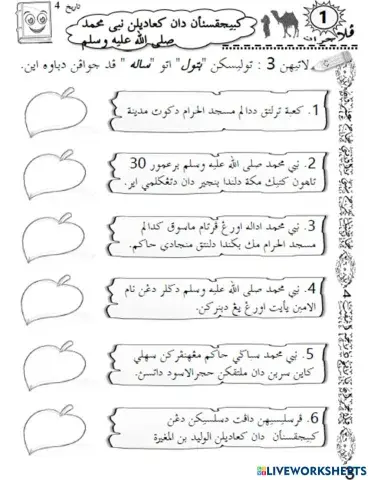 تاريخ 4
كبيجقسنأن دان كعاديلن نبي محمد
صلى الله عليه وسلم
1
لاتيهن 3 : توليسكن "بتول" اتو "ساله" قد جواڤن دباوه اين.
1. كعبة ترلتق ددالم مسجد الحرام دكوت مدينة
2. نبي محمد صلى الله عليه وسلم برعمور 30
تاهون كتيك مكة دلندا بنجير دان دتڠكلمي اير.
3. نبي محمد اداله اورڠ ڤرتام ماسوق كدالم
مسجد الحرام مك بكندا دلنتق منجادي حاكم.
4. نبي محمد صلى الله عليه وسلم دكلر دڠن نام
الامين يأيت اورڠ يڠ دبنركن.
5. نبي محمد سباكي حاكم مڠهمڤركن سهلي
كاين سربن دان ملتقكن حجرالاسود داتسن.
6. ڤرسليسيهن داڤت دسلسيكن دڠن
كبيجقسنأن دان كعاديلن الوليد بن المغيرة
LIVEWORKSHEETS